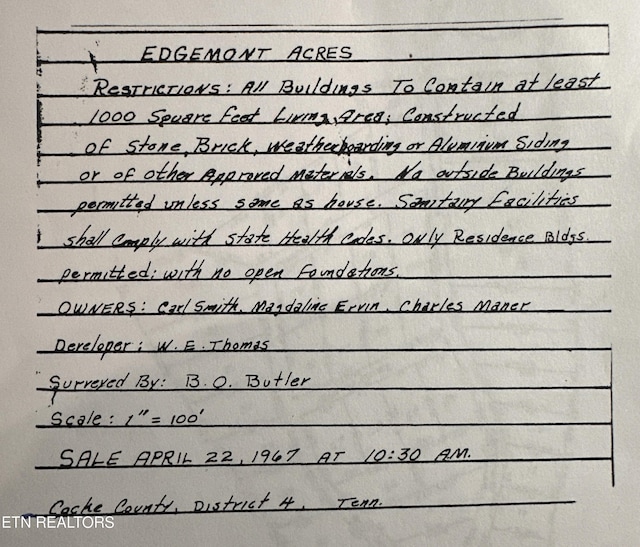 EDGEMONT ACRES
RESTRICTIONS: All Buildings To Contain at least
1000 Square Feet Living Area; Constructed
of Stone, Brick, Weatherboarding or Aluminum Siding
or of other Approved Materials. No outside Buildings
permitted unless same as house. Sanitary Facilities
shall Comply with State Health Codes. Only Residence Bldgs.
permitted; with no open Foundations.
OWNERS: Carl Smith, Magdaline Ervin, Charles Maner
Developer: W. E. Thomas
Surveyed By: B. O. Butler
Scale: 1" = 100'
SALE APRIL 22, 1967 AT 10:30 A.M.
Cocke County, District 4, Tenn.
ETN REALTORS